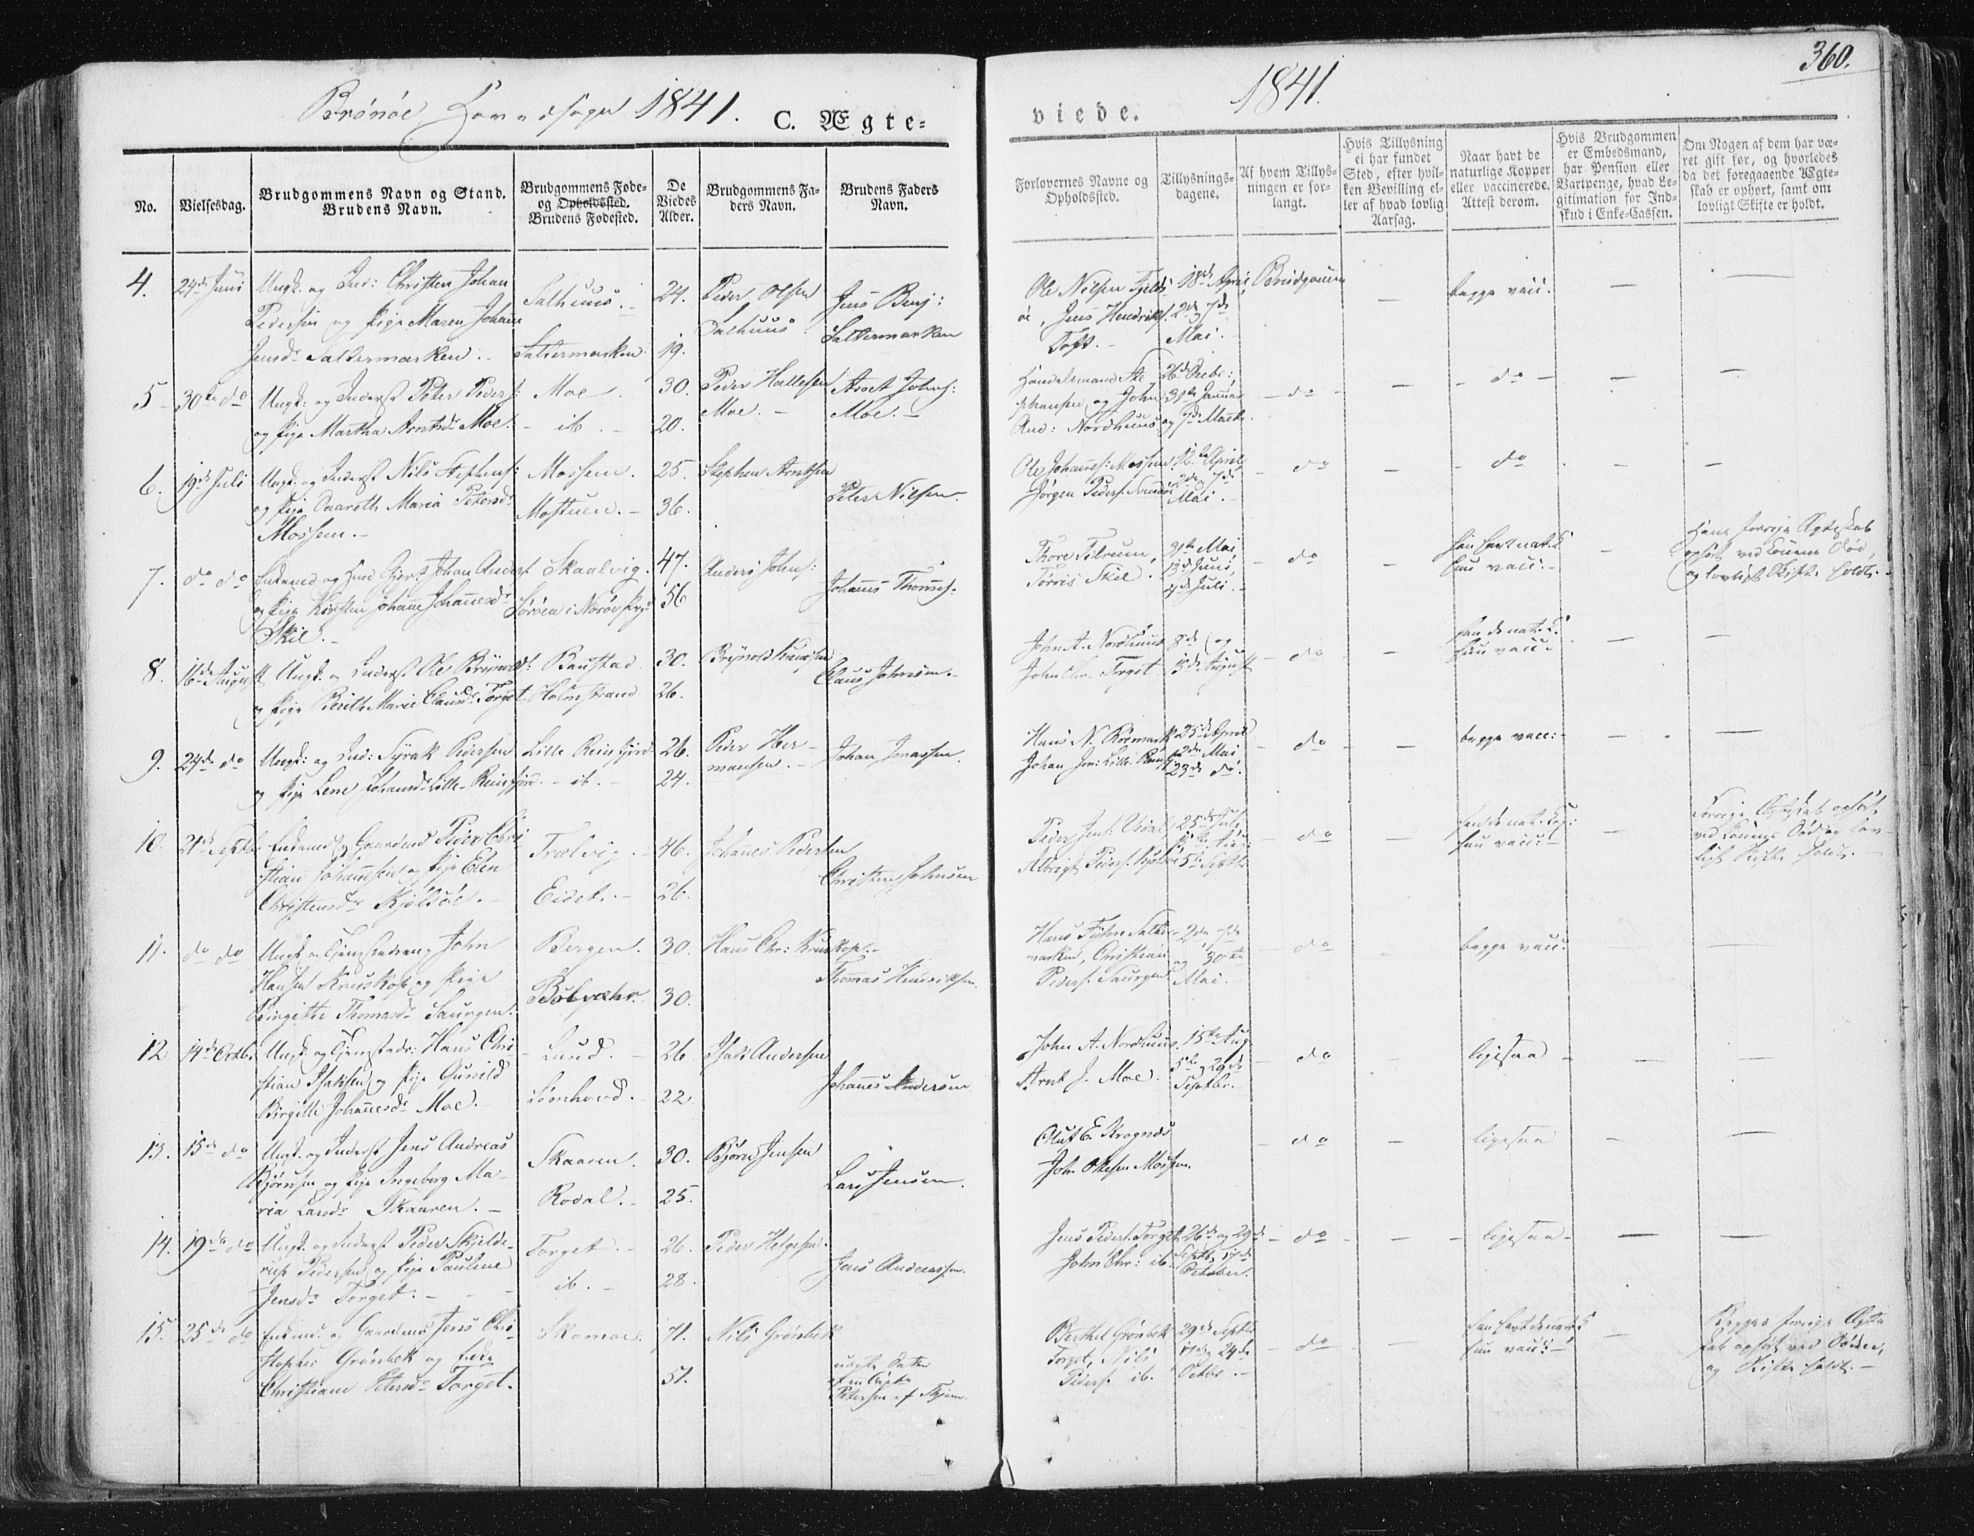 Brønøe Hovedsogn 1841. C. Ægte=
viede. 1841. 360.
No.
Vielsesdag.
Brudgommens Navn og Stand.
Brudens Navn.
Brudgommens Føde-
og Opholdssted.
Brudens Fødested.
De
Viedes
Alder.
Brudgommens Fa-
ders Navn.
Brudens Faders
Navn.
Forlovernes Navne og
Opholdssted.
Tillysnings-
dagene.
Af hvem Tillys-
ningen er for-
langt.
Hvis Tillysning
ei har fundet
Sted, efter hvil-
ken Bevilling el-
ler af hvad lovlig
Aarsag.
Naar havt de
naturlige Kopper
eller vaccinerede.
Attest derom.
Hvis Brudgommen
er Embedsmand,
har Pension eller
Vartpenge, hvad Le-
gitimation for Ind-
skud i Enke-Cassen.
Om Nogen af dem har væ-
ret gift før, og hvorledes
da det foregaaende Ægte-
skab er ophørt, samt om
lovligt Skifte er holdt.
4. 24de Juni Ungk. og Ind: Christen Johan
Pedersen og Pige Maren Johane
Jensdr Saltermarken.
Salhuus.
Saltermarken
24.
19.
Peder Olsen
Salhuus
Jens Benj:
Saltermarken
Ole Nilsen Fjelds-
øe, Jens Hendriks.
Toft.
18de April,
2de og 7de
Mai.
Brudgommen
begge vacc:
5 30te do Ungk: og Inderst Peter Peders:
og Pige Martha Arntsdr Moe.
Moe.
ib.
30.
20.
Peder Hallesen
Moe.
Arnt Johns:
Moe.
Handelsmand Ste-
phansen og John
And: Nordhuus
26de Decbr:,
31te Januar
og 7de Marts.
do
do
6. 19de Juli Ungk. og Inderst Nils Stephens:
og Pige Maria Petersdr
Mossem.
Mossem.
Mostuen.
25.
36.
Stephen Arntsen
Peter Nilsen
Ole Johannes: Mossem
Jørgen Peders.
12te April,
2de og 7de
Mai.
do
do
7. do do Enkemd og Johan Anders:
og Pige Kirsten Johane Johannesdr
Skil.
Skaalvig.
47.
56
Anders Johns:
Johannes Thomes.
Thore Tilrum,
Torris Skil.
31te Mai,
13de Juni,
4de Juli.
do
han havt nat. K
hun vacc:
Hans forrige Ægteskab
ophørt ved Konens Død,
og lovligt Skifte holdt.
8. 16de August Ungk. og Inderst Ole Brynolds:
og Pige Berith Marie Clausdr Torget.
Baustad
Holmstrand
30.
26.
Brynold Knudsen
Claus Johnsen.
John A. Nordhuus
John Chr. Torget
8de og
15de August
do
han de nat. K.
hun vacc:
9. 24de do Ungk: og Ind: Syrak Pedersen
og Pige Lene Johansdr Lille-Reinsfjord.
Lille Reinsfjord
ib.
26.
24.
Peder Her-
mansen.
Johan Jonassen.
Hans N. Rørmark
Johan Jon: Lille Reinsf.
25de April
2de Mai
23de do.
do
begge vacc:
10. 21de Septbr. Enkemd og Gaardmd Peder Chri-
stian Johannsen og Pige Elen
Christensdr Kjølsøe.
Trælvig.
Eidet.
46.
26.
Johannes Pedersen
Christen Johnsen
Peder Jens:
Albrigt Peders.
25de Juli,
5te Septbr
do
han de nat. Kop:
hun vacc:
Forrige Ægteskab ophørt
ved Konens Død og lov-
ligt Skifte holdt.
11. do do Ungk. og John
Hansen Kruskop og Pige
Birgitte Thomasdr Saurgen.
Bergen.
30.
30.
Hans Chr: Kruskop.
Thomas Hendriksen.
Hans Salter-
marken, Christian
Peders. Saurgen
2de, 7de
og 30te
Mai.
do
begge vacc:
12. 14de Octbr. Ungk. og Tjenestedr: Hans Chri-
stian Isaksen og Pige Gunild
Birgitte Johannesdr Moe.
Lund.
Sømhovd.
26.
22.
Isak Andersen
Johannes Andersen
John A. Nordhuus.
Arnt J. Moe.
15te Aug.
5te og 29de
Septbr.
do
ligesaa
13. 15de do Ungk. og Inderst Jens Andreas
Bjørnsen og Pige Ingeborg Ma-
ria Larsdr Skaaren.
Skaaren.
Rodal.
30.
25.
Bjørn Jensen
Lars Jensen.
Oluf E. Krognes
John Olsen Mossem.
do
ligesaa
14. 19de do Ungk. og Inderst Peder Skjelde-
rup Pedersen og Pige Pauline
Jensdr Torget.
Torget.
ib.
26.
28.
Peder Helgesen.
Jens Andreassen.
Jens Peders. Torget
John Chr: ib.
26de og 29de
Septbr, 17de
October.
do
ligesaa
15. 25de do Enkmd. og Gaardmd Jens Chri-
stopher Grønbek og Enke
Christiane Petersdr Torget.
71.
51.
Nils Grønbek
uægte Datter
Petersen af
Berthel Grønbek
Torget, Nils
Peders. ib.
29de Septbr
17de og 24de
Octbr.
do
han havt de nat. K
hun vacc:
Begges forrige Ægte-
skab ophørt ved Døden,
og Skifte holdt.